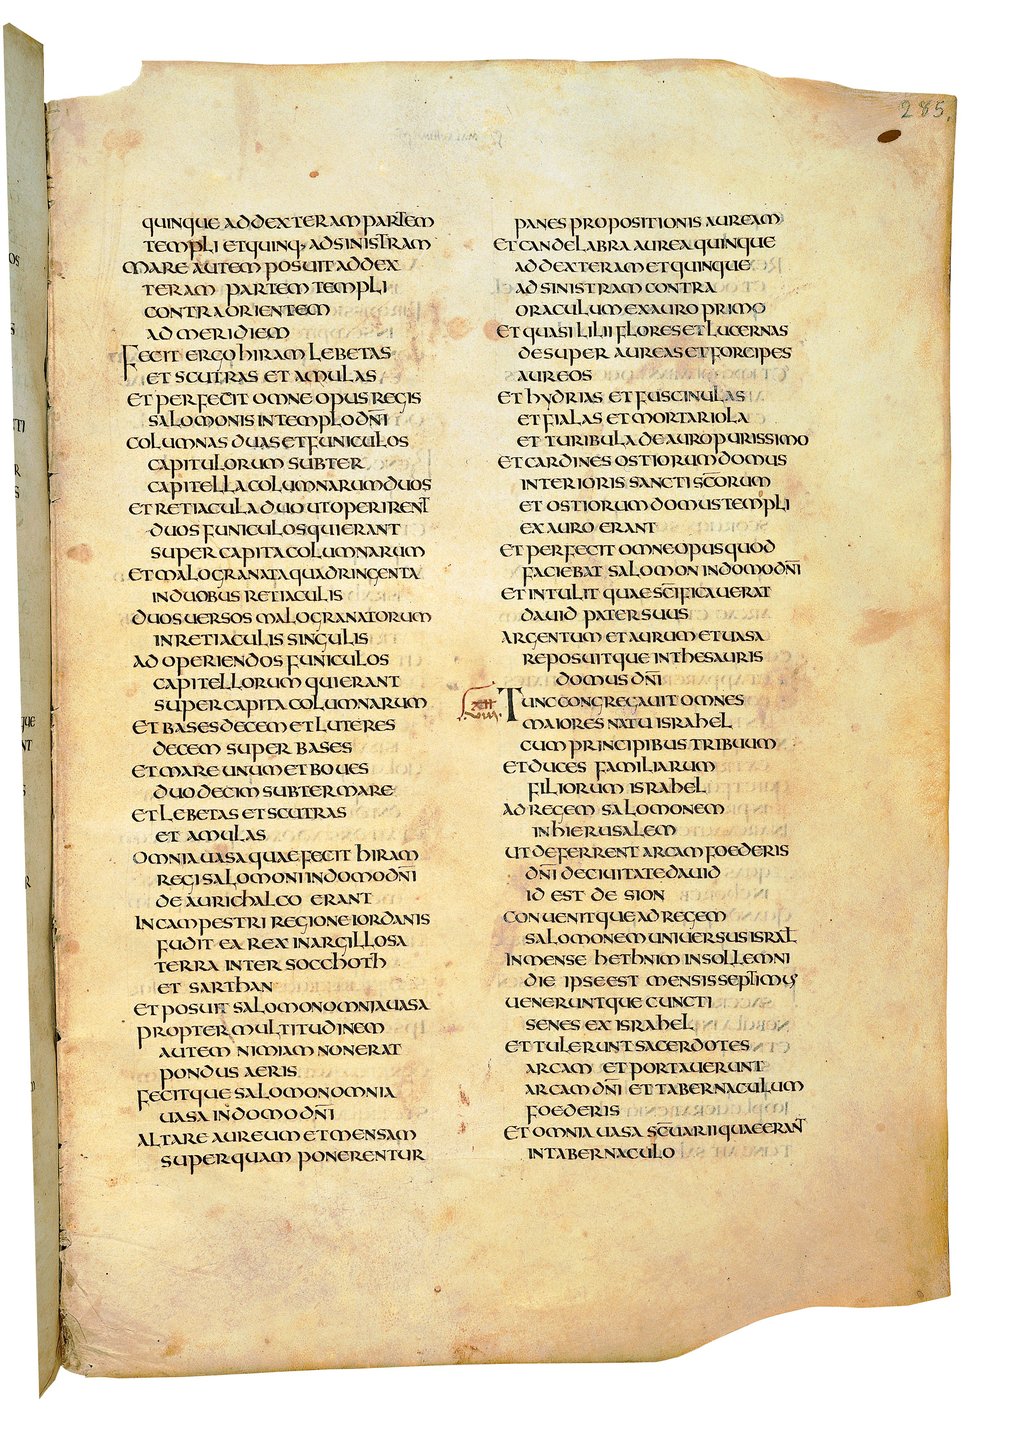 285.
QUINQUE AD DEXTERAM PARTEM
TEMPLI ET QUINQ, AD SINISTRAM
MARE AUTEM POSUIT AD DEX
TERAM PARTEM TEMPLI
CONTRA ORIENTEM
AD MERIDIEM
FECIT ERGO HIRAM LEBETAS
ET SCUTRAS ET AMULAS
ET PERFECIT OMNE OPUS REGIS
SALOMONIS IN TEMPLO DN̅I
COLUMNAS DUAS ET FUNICULOS
CAPITULORUM SUBTER
CAPITELLA COLUMNARUM DUOS
ET RETIACULA DUO UT OPERIRENT
DUOS FUNICULOS QUI ERANT
SUPER CAPITA COLUMNARUM
ET MALOGRANATA QUADRINGENTA
IN DUOBUS RETIACULIS
DUOS UERSOS MALOGRANATORUM
IN RETIACULIS SINGULIS
AD OPERIENDOS FUNICULOS
CAPITELLORUM QUI ERANT
SUPER CAPITA COLUMNARUM
ET BASES DECEM ET LUTERES
DECEM SUPER BASES
ET MARE UNUM ET BOUES
DUODECIM SUBTER MARE
ET LEBETAS ET SCUTRAS
ET AMULAS
OMNIA UASA QUAE FECIT HIRAM
REGI SALOMONI IN DOMO DN̅I
DE AURICHALCO ERANT
IN CAMPESTRI REGIONE IORDANIS
FUDIT EA REX IN ARGILLOSA
TERRA INTER SOCCHOTH
ET SARTHAN
ET POSUIT SALOMON OMNIA UASA
PROPTER MULTITUDINEM
AUTEM NIMIAM NON ERAT
PONDUS AERIS
FECITQUE SALOMON OMNIA
UASA IN DOMO DN̅I
ALTARE AUREUM ET MENSAM
SUPER QUAM PONERENTUR
PANES PROPOSITIONIS AUREAM
ET CANDELABRA AUREA QUINQUE
AD DEXTERAM ET QUINQUE
AD SINISTRAM CONTRA
ORACULUM EX AURO PRIMO
ET QUASI LILII FLORES ET LUCERNAS
DESUPER AUREAS ET FORCIPES
AUREOS
ET HYDRIAS ET FUSCINULAS
ET FIALAS ET MORTARIOLA
ET TURIBULA DE AURO PURISSIMO
ET CARDINES OSTIORUM DOMUS
INTERIORIS SANCTI SC̅ORUM
ET OSTIORUM DOMUS TEMPLI
EX AURO ERANT
ET PERFECIT OMNE OPUS QUOD
FACIEBAT SALOMON IN DOMO DN̅I
ET INTULIT QUAE SC̅IFICAUERAT
DAUID PATER SUUS
ARGENTUM ET AURUM ET UASA
REPOSUITQUE IN THESAURIS
DOMUS DN̅I
TUNC CONGREGAUIT OMNES
MAIORES NATU ISRAHEL
CUM PRINCIPIBUS TRIBUUM
ET DUCES FAMILIARUM
FILIORUM ISRAHEL
AD REGEM SALOMONEM
IN HIERUSALEM
UT DEFERRENT ARCAM FOEDERIS
DN̅I DE CIUITATE DAUID
ID EST DE SION
CONUENITQUE AD REGEM
SALOMONEM UNIUERSUS ISRA̅L
IN MENSE HETHNIM IN SOLLEMNI
DIE IPSE EST MENSIS SEPTIMUS
UENERUNTQUE CUNCTI
SENES EX ISRAHEL
ET TULERUNT SACERDOTES
ARCAM ET PORTAUERUNT
ARCAM DN̅I ET TABERNACULUM
FOEDERIS
ET OMNIA UASA SC̅UARII QUAE ERANT
IN TABERNACULO